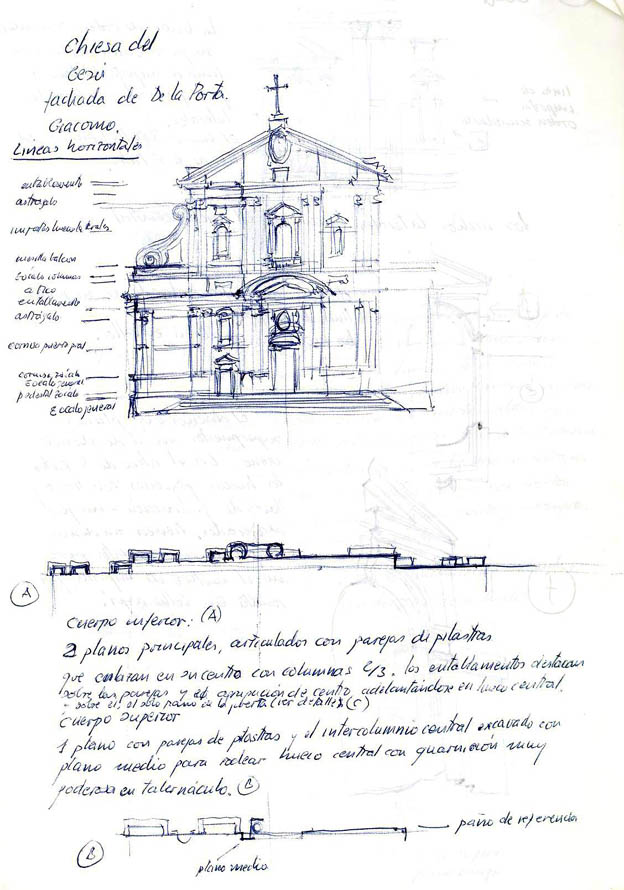 Chiesa del
Gesú
fachada de De la Porta.
Giacomo.
Lineas horizontales
entablamento
astrágalo
imposta huecos laterales
columnas
atico
entablamento
astrágalo
cornisa puerta pral
cornisa zócalo
Zocalo general
pedestal zocalo
Zocalo general
A
Cuerpo inferior: (A)
2 planos principales, articulados con parejas de pilastras
que enlazan en su centro con columnas 2/3. los entablamentos destacan
sobre las parejas y el agrupación de centro, adelantándose en hueco central.
- sobre el sólo paño de la puerta (ver detalle) (C)
Cuerpo superior
1 plano con parejas de pilastras y el intercolumnio central excavado con
plano medio para rodear hueco central con guarnición muy
poderosa en tabernáculo.
paño de referencia
plano medio
B